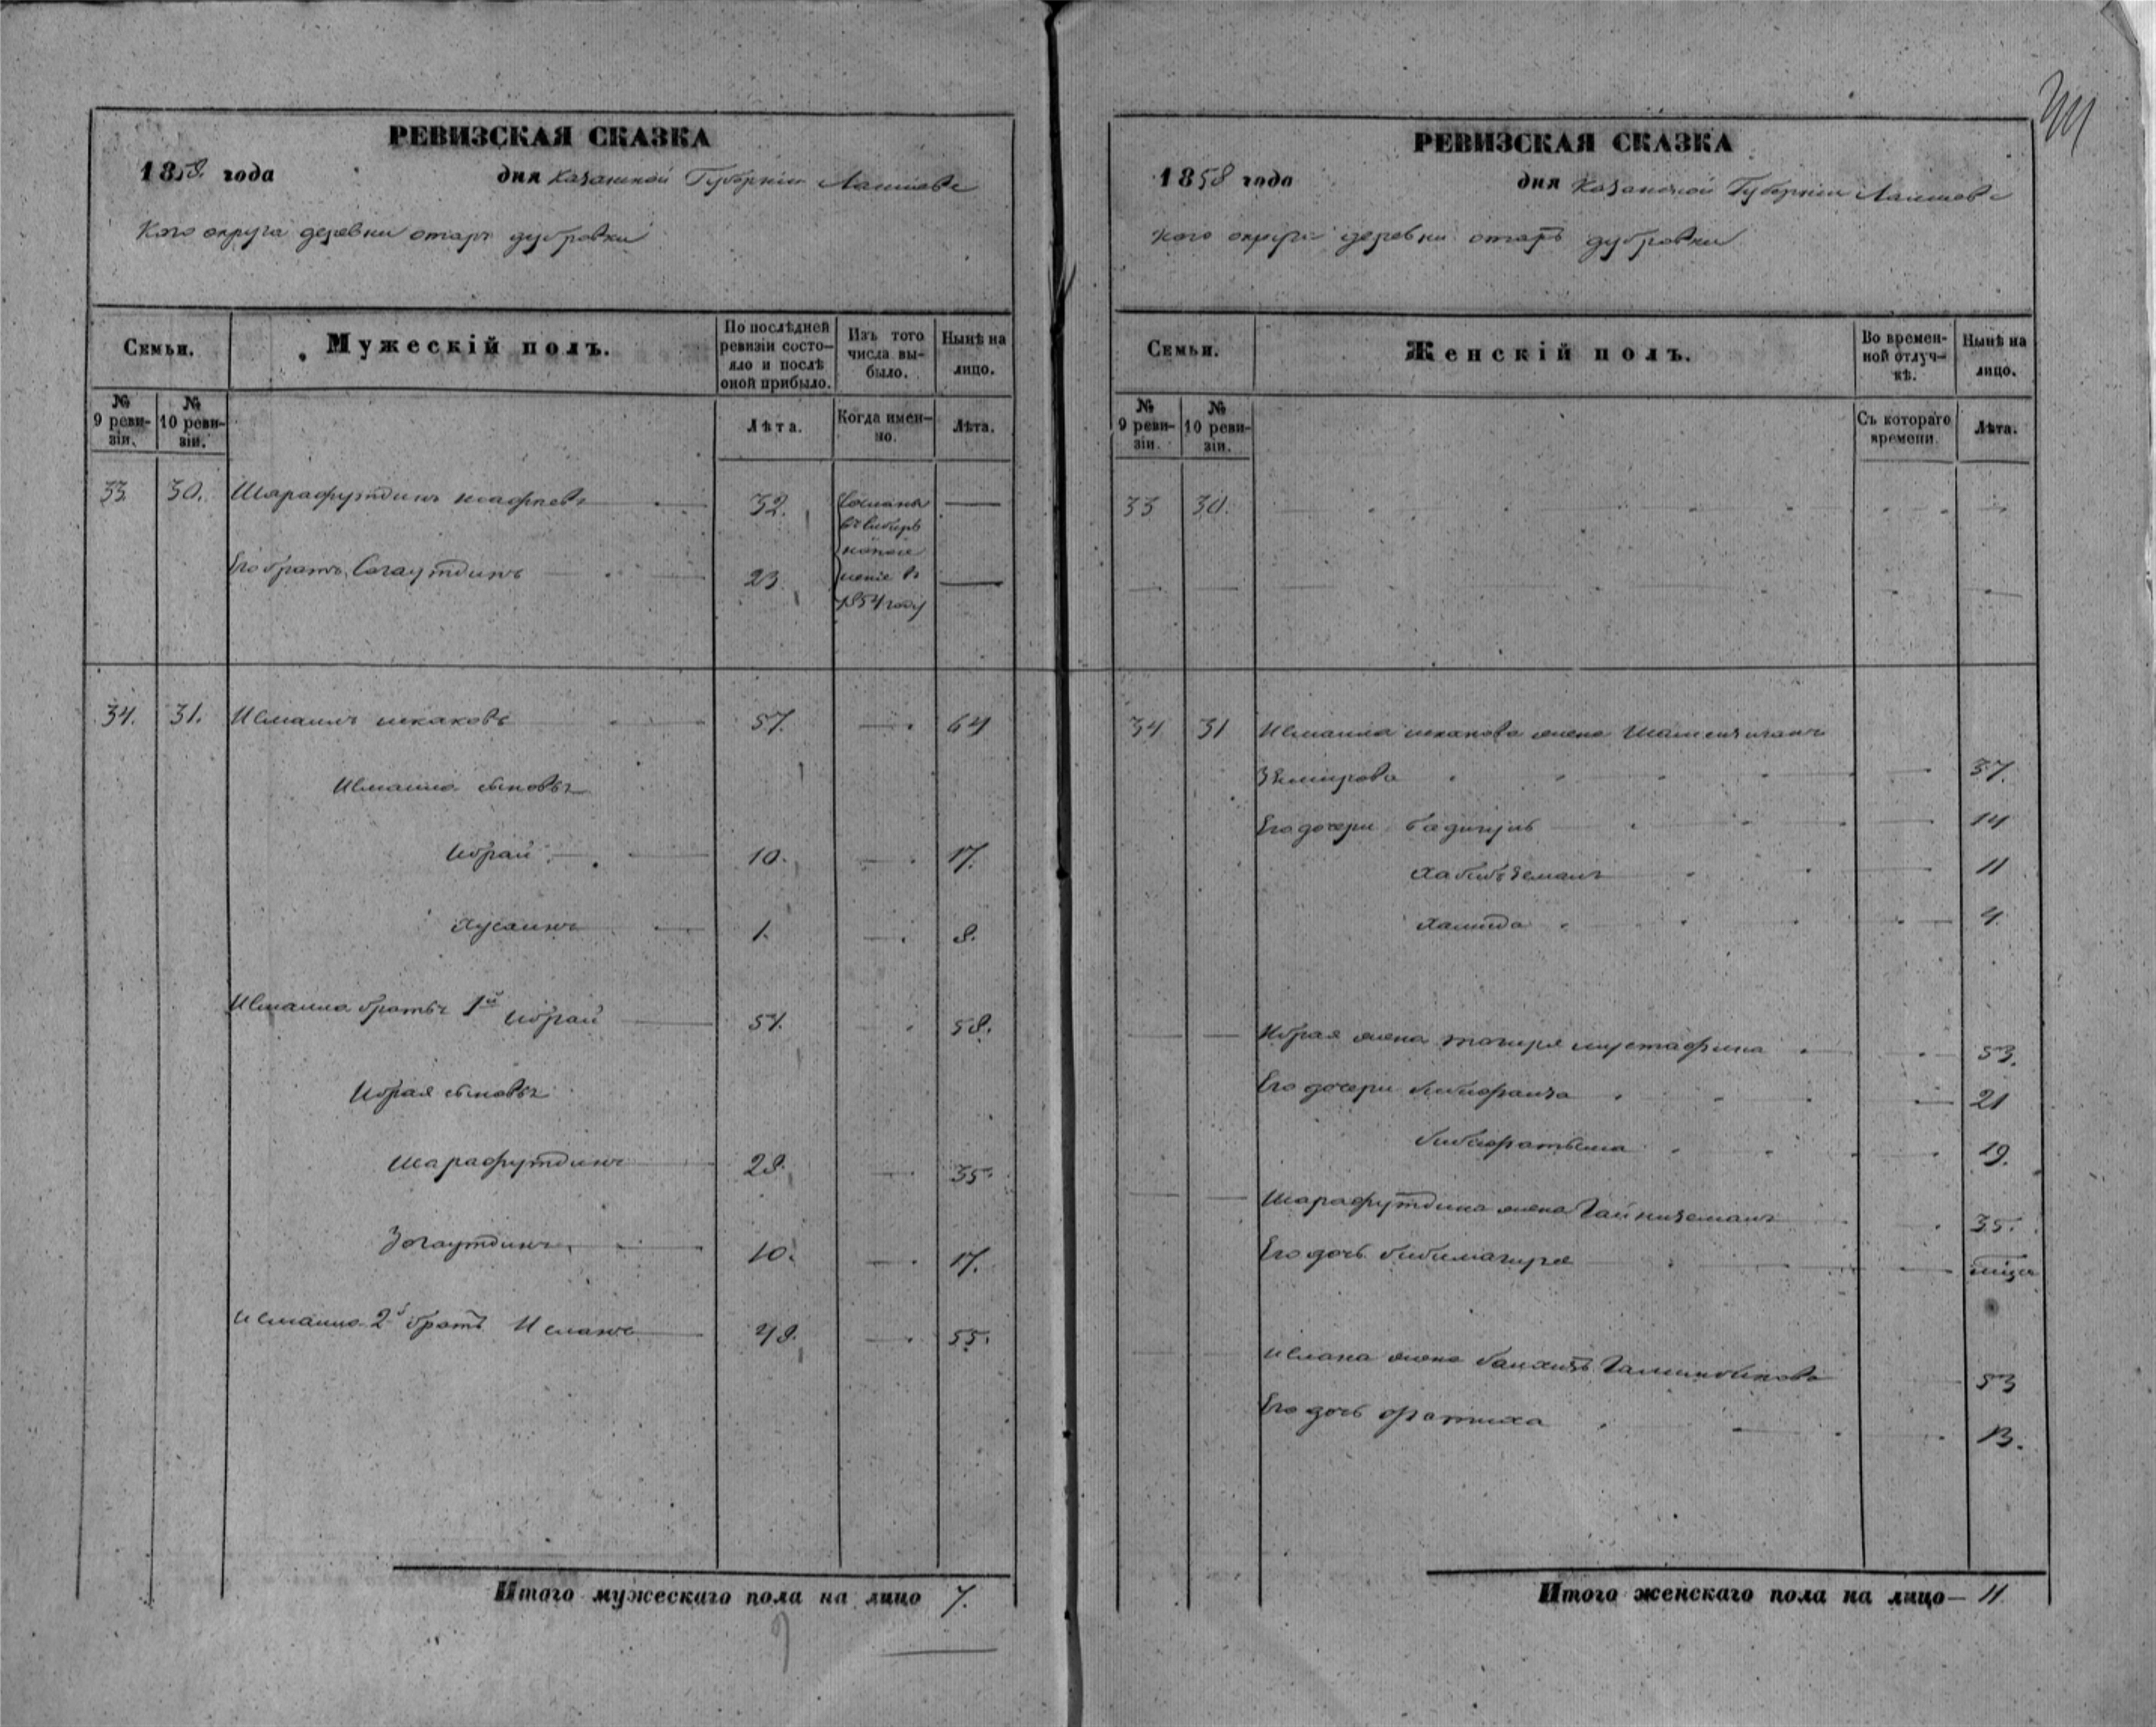 РЕВИЗСКАЯ СКАЗКА
1858 года дня Казанской Губернии Лаишевс
кого округа деревни отаръ дубровки
Семьи.
Мужескій полъ.
По послѣдней ревизіи состояло и послѣ оной прибыло.
Изъ того числа выбыло.
Нынѣ на лицо.
№ 9 ревизіи.
№ 10 ревизіи.
Лѣта.
Когда именно.
Лѣта.
33 30. Шарафутдинъ 32. Сосланы —
въ Сибирь
на посе
Его братъ Сагаутдинъ 23. леніе въ —
1854 году
34. 31. Исмаилъ исхаковъ 57. — 64
Исмаила сыновья
Ибрай 10. — 17.
Хусаинъ 1. — 8.
Исмаила братья 1й Ибрай 51. — 58.
Ибрая сыновья
Шарафутдинъ 28. — 35.
Загаутдинъ 10. — 17.
Исмаила 2й братъ Исланъ 48. — 55.
Итого мужескаго пола на лицо 7.
РЕВИЗСКАЯ СКАЗКА
1858 года дня Казанской Губернии Лаишевс
кого округа деревни отаръ дубровки
Семьи.
Женскій полъ.
Во временной отлучкѣ.
Нынѣ на лицо.
№ 9 ревизіи.
№ 10 ревизіи.
Съ котораго времени.
Лѣта.
33 30.
34 31 Исмаила исхакова жена
— 37.
Его дочери — 14
Хабибъземалъ — 11
Хамида — 4.
— — Ибрая жена тагиря мустафина — 53.
Его дочери бибифаиза — 21
бибифатьма — 19.
— — Шарафутдина жена Гайниземалъ 35.
Его дочь бибимагиря —
Ислана жена 53
Его дочь фатиха 13.
Итого женскаго пола на лицо — 11